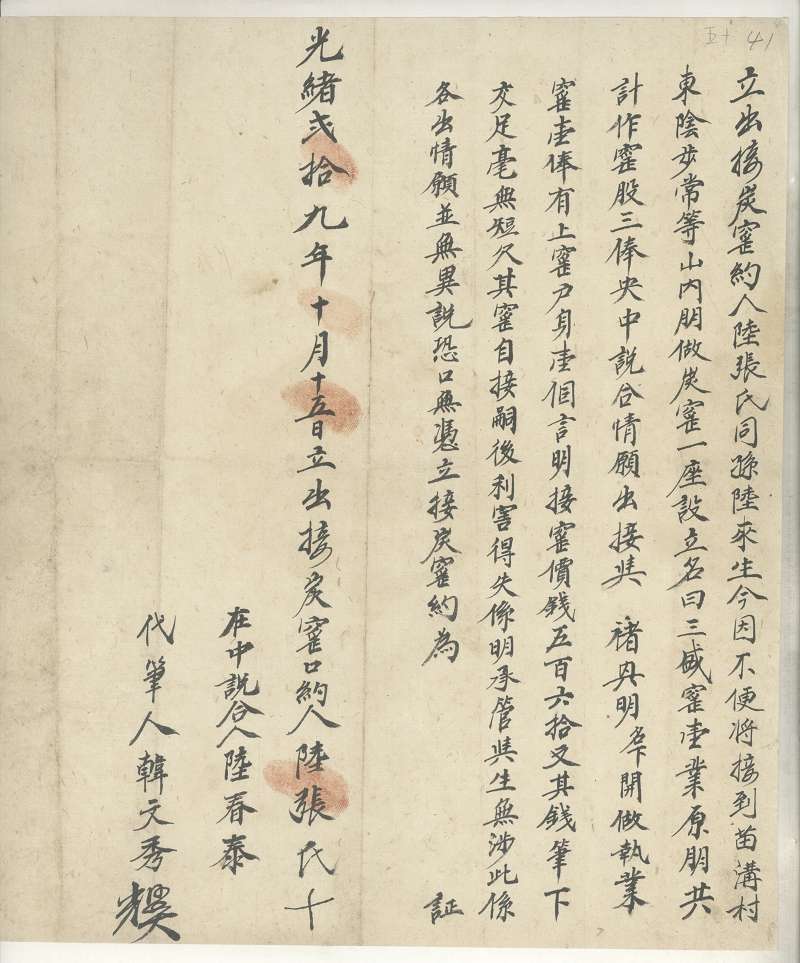 五十 41
立出接炭窰約人陸張氏同孫陸來生今因不便將接到苗溝村
東陰步常等山內朋做炭窰一座設立名曰三盛窰壹業原朋共
計作窰股三俸央中說合情願出接與 褚具明名下開做執業
窰壹俸有上窰戶身壹個言明接窰價錢五百六拾文其錢筆下
交足毫無短欠其窰自接嗣後利害得失係明承管與生無涉此係
各出情願並無異說恐口無憑立接炭窰約為 証
光緒弍拾九年十月十五日立出接炭窰口約人陸張氏十
在中說合人陸春泰
代筆人韓文秀